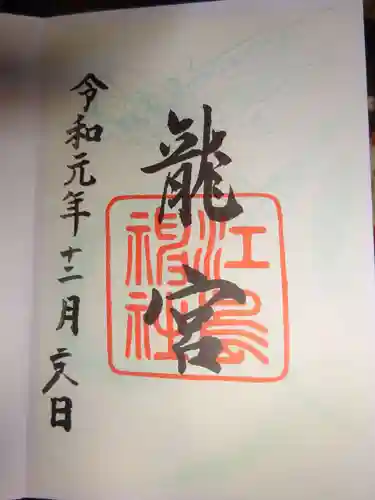 龍宮
江島
神社
令和元年十二月二八日